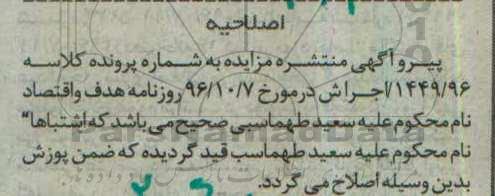 اصلاحیه
پیرو آگهی منتشره مزایده به شماره پرونده کلاسه
۱۴۴۹/۹۶/اجرا ش درمورخ ۹۶/۱۰/۷ روزنامه هدف واقتصاد
نام محکوم علیه سعید طهماسبی صحیح می باشد که اشتباها"
نام محکوم علیه سعید طهماسب قید گردیده که ضمن پوزش
بدین وسیله اصلاح می گردد.